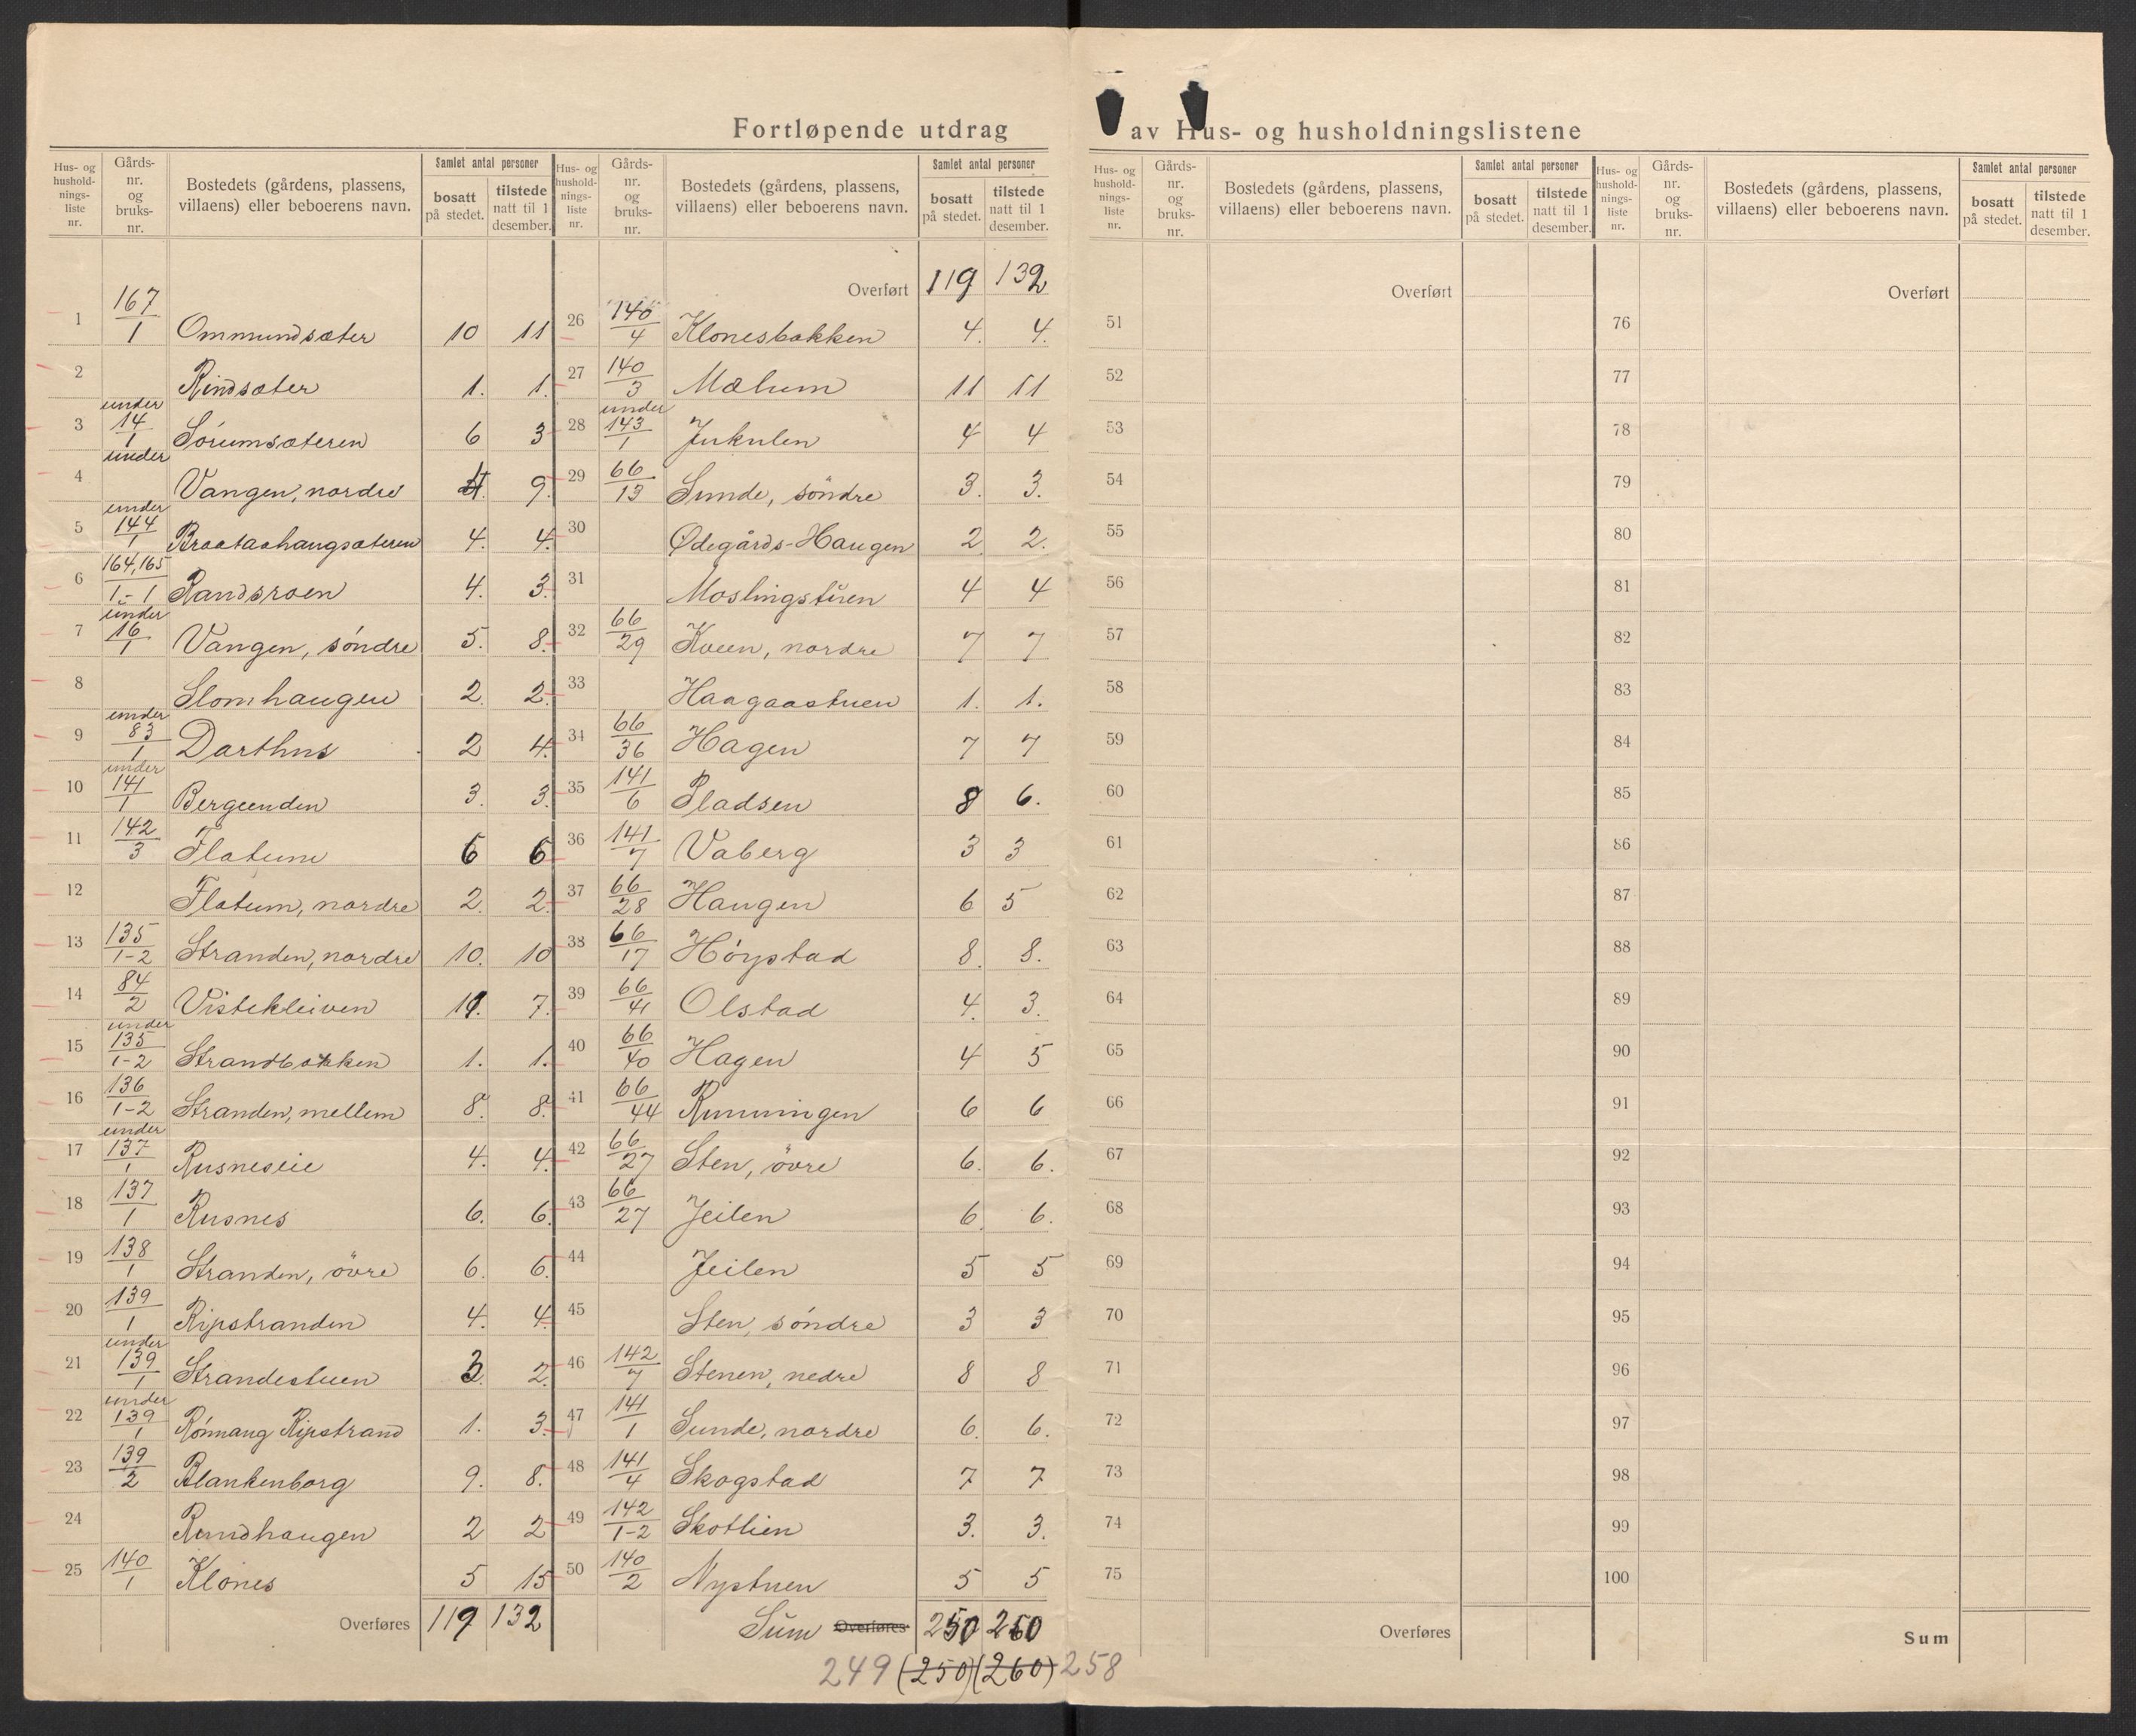 Fortløpende utdrag av Hus- og husholdningslistene
Hus- og hushold-nings-liste nr. Gårds-nr. og bruks-nr. Bostedets (gårdens, plassens, villaens) eller beboerens navn. Samlet antal personer bosatt på stedet. tilstede natt til 1 desember.
1 167/1 Ommundsæter 10 11
2 Rindsæter 1. 1.
3 under 14/1 Sørumsæteren 6 3
4 under Vangen, nordre 4. 9.
5 under 144/1 Braataahaugsæteren 4. 4.
6 164,165/1-1 Randsroen 4. 3.
7 under 16/1 Vangen, søndre 5. 8.
8 Slomhaugen 2. 2.
9 under 83/1 Darthus 2 4.
10 under 141/1 Bergeenden 3. 3.
11 142/3 Flatum 6 6
12 Flatum, nordre 2. 2.
13 135/1-2 Stranden, nordre 10. 10
14 84/2 Vistekleiven 11. 7.
15 under 135/1-2 Strandbakken 1. 1.
16 136/1-2 Stranden, mellem 8. 8.
17 under 137/1 Rusneseie 4. 4.
18 137/1 Rusnes 6. 6.
19 138/1 Stranden, øvre 6. 6.
20 139/1 Ripstranden 4. 4.
21 under 139/1 Strandestuen 3. 2.
22 under 139/1 Rønnaug Ripstrand 1. 3.
23 139/2 Blankenborg 9. 8.
24 Rundhaugen 2 2
25 140/1 Klones 5 15
Overføres 119 132
Hus- og hushold-nings-liste nr. Gårds-nr. og bruks-nr. Bostedets (gårdens, plassens, villaens) eller beboerens navn. Samlet antal personer bosatt på stedet. tilstede natt til 1 desember.
Overført 119 132
26 140/4 Klonesbakken 4. 4.
27 140/3 Mælum 11 11
28 under 143/1 Jukulen 4 4
29 66/13 Sunde, søndre 3. 3.
30 Ødegårds-Haugen 2 2.
31 Moslingstuen 4 4
32 66/29 Kveen, nordre 7 7
33 Haagaastuen 1. 1.
34 66/36 Hagen 7 7
35 141/6 Pladsen 8 6.
36 141/7 Vaberg 3 3
37 66/28 Haugen 6 5
38 66/17 Høystad 8. 8.
39 66/41 Olstad 4. 3.
40 66/40 Hagen 4 5
41 66/44 Runningen 6 6
42 66/27 Sten, øvre 6. 6.
43 66/27 Jeilen 6. 6.
44 Jeilen 5 5
45 Sten, søndre 3 3
46 142/7 Stenen, nedre 8 8
47 141/1 Sunde, nordre 6. 6.
48 141/4 Skogstad 7 7
49 142/1-2 Skotlien 3. 3.
50 140/2 Nystuen 5 5
Sum Overføres 250 260
249 (250) (260) 258
Hus- og hushold-nings-liste nr. Gårds-nr. og bruks-nr. Bostedets (gårdens, plassens, villaens) eller beboerens navn. Samlet antal personer bosatt på stedet. tilstede natt til 1 desember.
Overført
51
52
53
54
55
56
57
58
59
60
61
62
63
64
65
66
67
68
69
70
71
72
73
74
75
Overføres
Hus- og hushold-nings-liste nr. Gårds-nr. og bruks-nr. Bostedets (gårdens, plassens, villaens) eller beboerens navn. Samlet antal personer bosatt på stedet. tilstede natt til 1 desember.
Overført
76
77
78
79
80
81
82
83
84
85
86
87
88
89
90
91
92
93
94
95
96
97
98
99
100
Sum